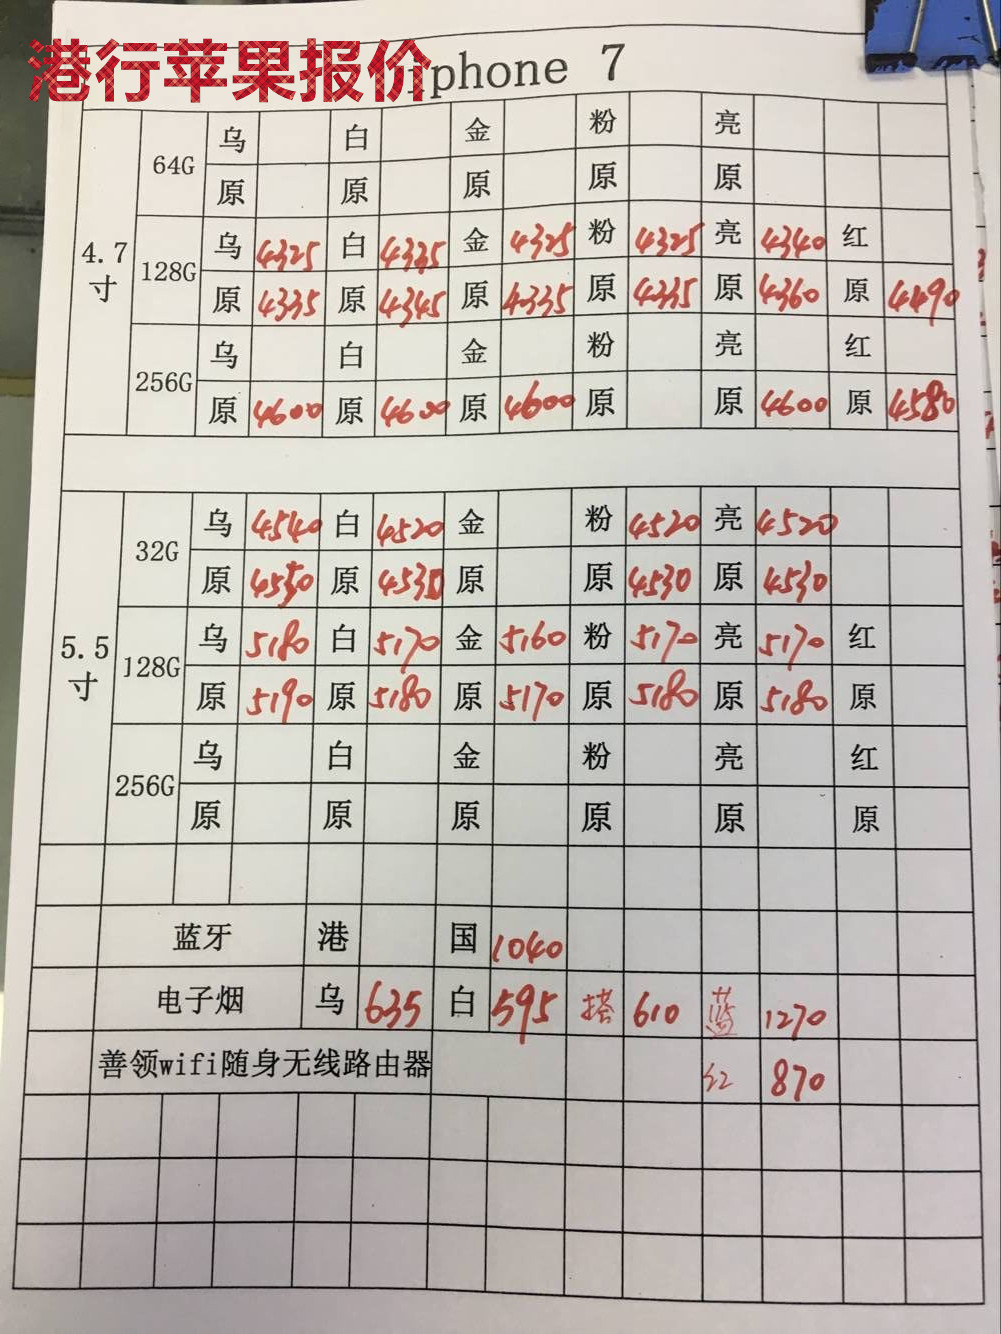 港行苹果报价
iphone 7
64G 乌 白 金 粉 亮
原 原 原 原 原
4.7寸 128G 乌 4325 白 4335 金 4325 粉 4325 亮 4340 红
原 4335 原 4345 原 4335 原 4335 原 4360 原 4490
256G 乌 白 金 粉 亮 红
原 4600 原 4600 原 4600 原 原 4600 原 4580
32G 乌 4540 白 4520 金 粉 4520 亮 4520
原 4550 原 4530 原 原 4530 原 4530
5.5寸 128G 乌 5180 白 5170 金 5160 粉 5170 亮 5170 红
原 5190 原 5180 原 5170 原 5180 原 5180 原
256G 乌 白 金 粉 亮 红
原 原 原 原 原 原
蓝牙 港 国 1040
电子烟 乌 635 白 595 搭 610 蓝 1270
善领wifi随身无线路由器 红 870